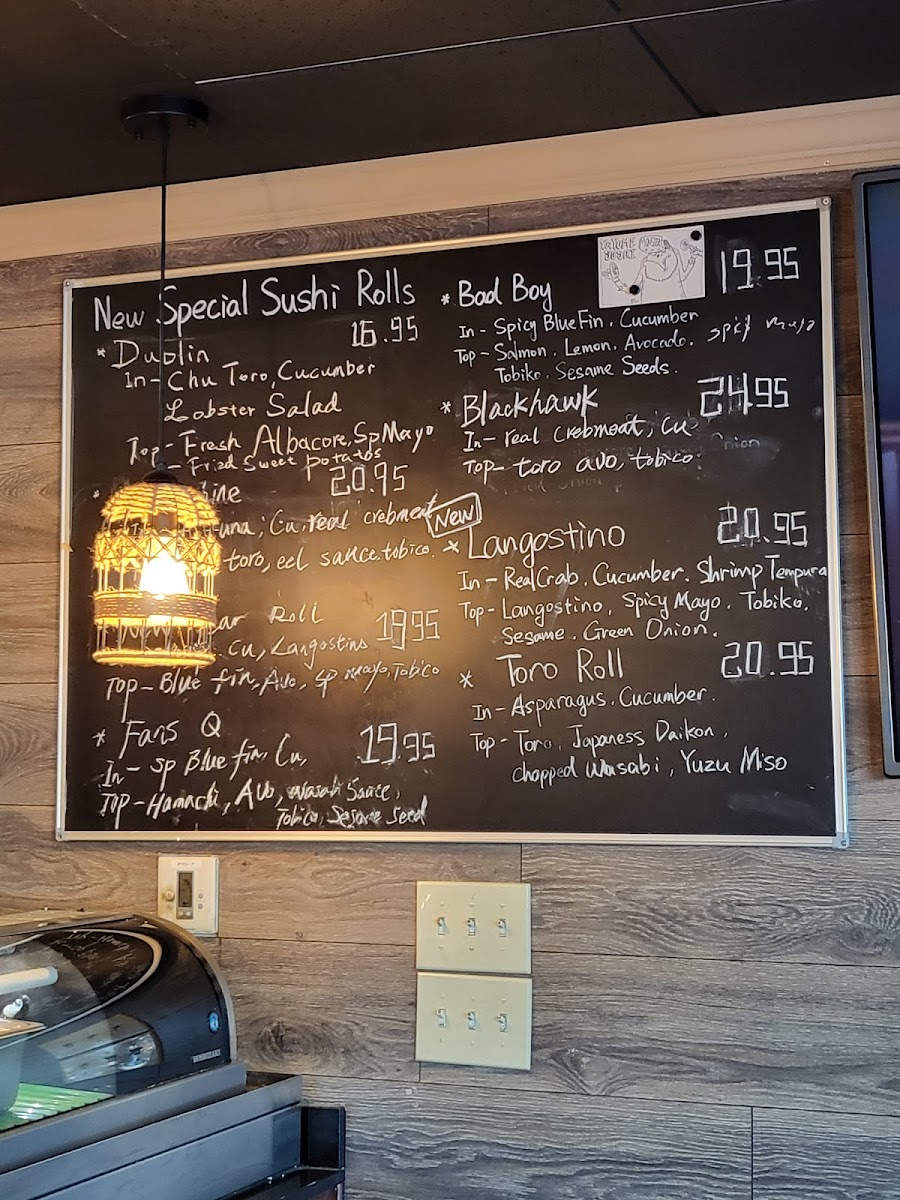 New Special Sushi Rolls
* Dublin 16.95
In - Chu Toro, Cucumber
Lobster Salad
Top - Fresh Albacore, Sp Mayo
- Fried Sweet Potatos
20.95
Cu, real crebmeat
toro, eel sauce. tobico.
Roll 19.95
Cu, Langostino
Top - Blue fin, Avo, sp mayo, Tobico
* Fans Q 19.95
In - Sp Blue fin, Cu,
Top - Hamachi, Avo, wasabi Sauce,
Tobico, Sesame Seed
YUZU
SUSHI
* Bad Boy 19.95
In - Spicy Blue Fin. Cucumber
Top - Salmon. Lemon. Avocado. spicy mayo
Tobiko. Sesame Seeds.
* Blackhawk 24.95
In - real crebmeat, cu
Top - toro avo, tobico.
New
* Langostino 20.95
In - Real Crab. Cucumber. Shrimp Tempura
Top - Langostino, Spicy Mayo. Tobiko.
Sesame. Green Onion.
* Toro Roll 20.95
In - Asparagus. Cucumber.
Top - Toro, Japaness Daikon,
chopped Wasabi, Yuzu Miso